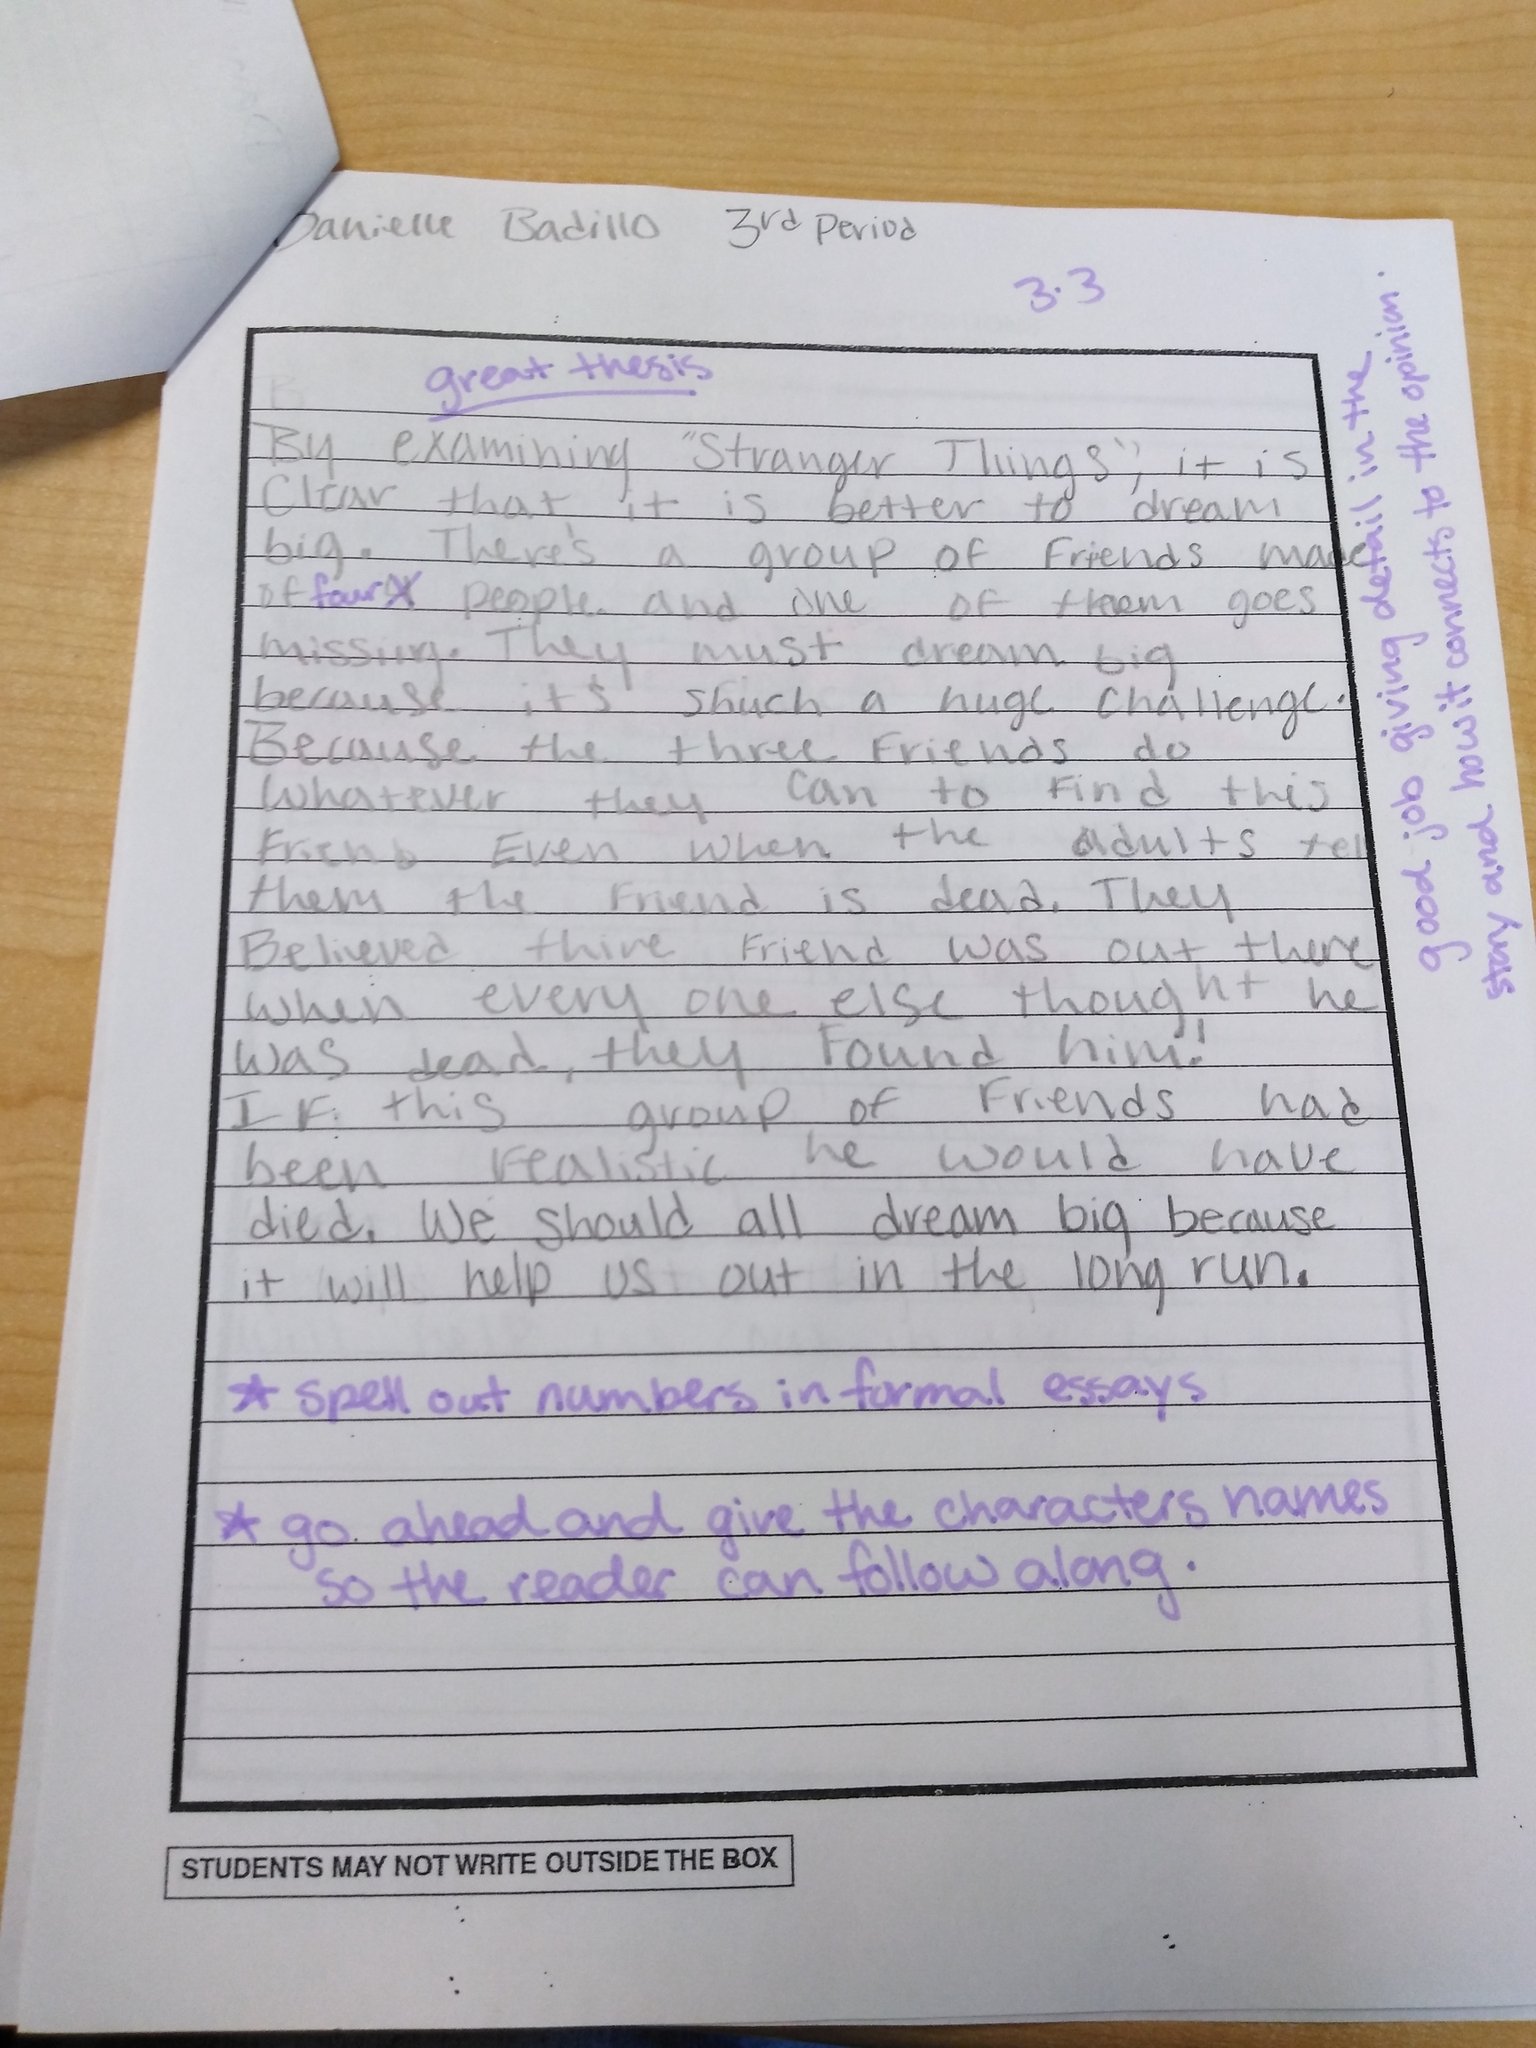 Danielle Badillo 3rd Period
3.3
great thesis
By examining "Stranger Things", it is
Clear that it is better to dream
big. There's a group of Friends made
of four people and one of them goes
missing. They must dream big
because it's shuch a huge challenge.
Because the three Friends do
whatever they can to Find this
Friend Even when the adults tell
them the Friend is dead. They
Believed thire Friend was out there
when every one else thought he
was dead, they Found him!
IF this group of Friends had
been realistic he would have
died. We should all dream big because
it will help us out in the long run.
* spell out numbers in formal essays
* go ahead and give the characters names
so the reader can follow along.
good job giving detail in the
stry and how it connects to the opinion.
STUDENTS MAY NOT WRITE OUTSIDE THE BOX